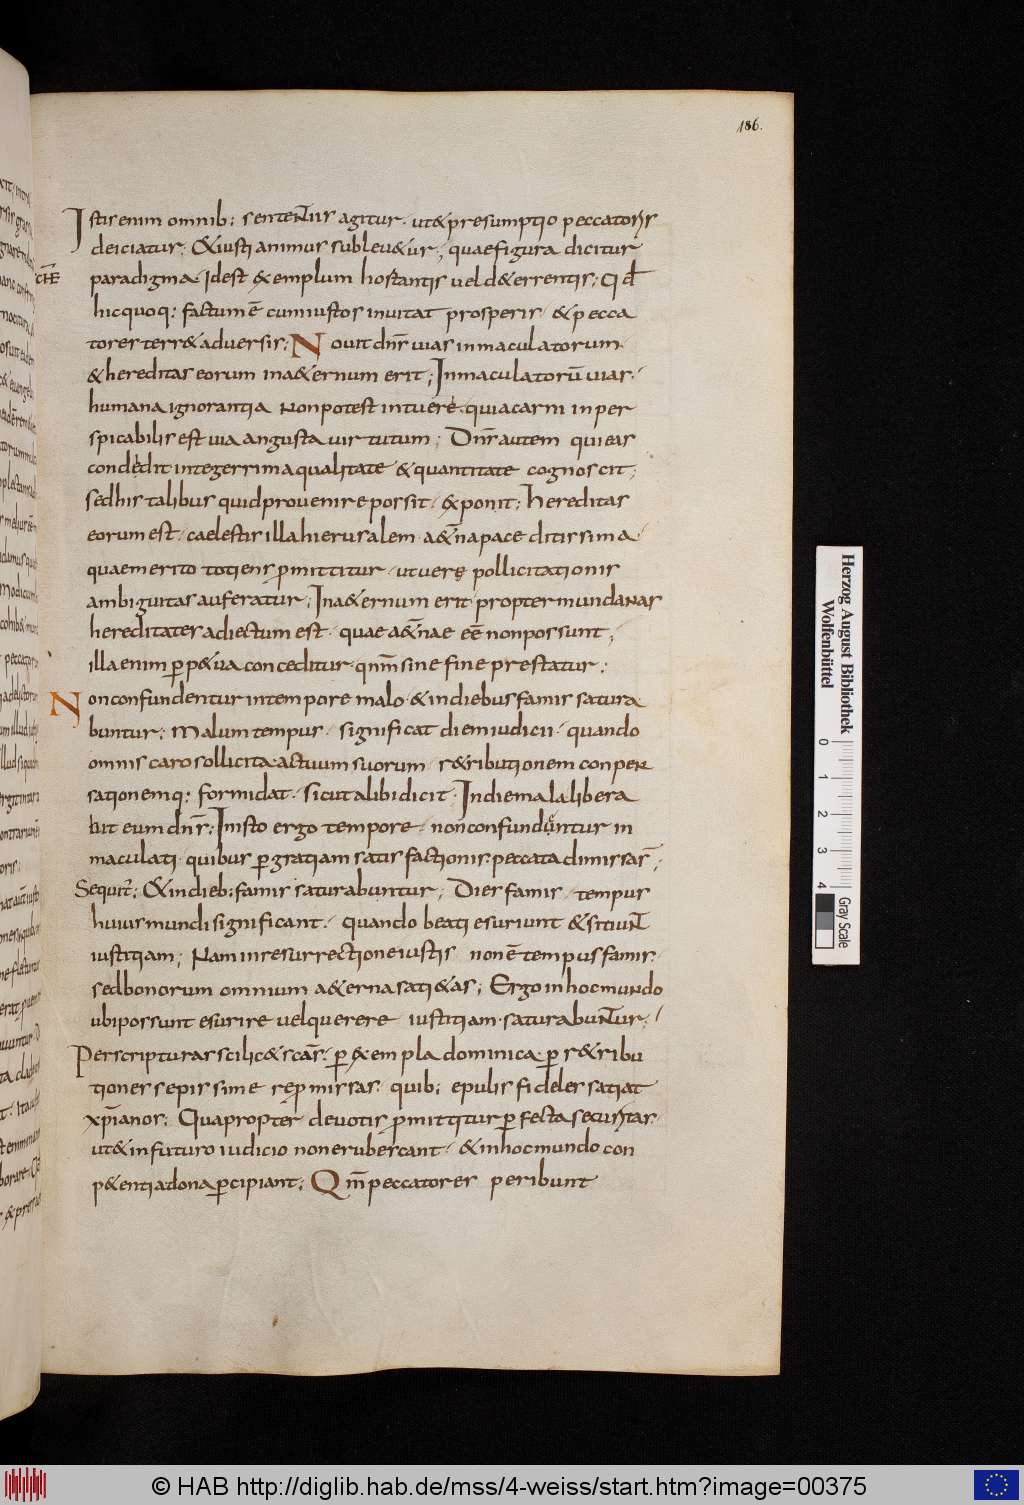 186.
Istis enim omnib; sententiis agitur. ut & presumptio peccatoris
deiciatur. & iusti animus subleu&ur; quae figura dicitur
paradigma Idest exemplum hostantis uel d&errentis; Qđ
hic quoq; factum ē cum iustos inuitat prosperis. & pecca
tores terr& aduersis; Nouit dn̄s uias inmaculatorum.
& hereditas eorum in a&ernum erit; Inmaculatorū uias.
humana ignorantia Non potest intuere. quia carni inper
spicabilis est uia angusta uirtutum; Dn̄s autem qui eas
condedit integerrima qualitate & quantitate cognoscit;
sed his talibus quid prouenire possit. exponit; Hereditas
eorum est. caelestis illa hierusalem. a&̄na pace ditissima.
quae merito totiens p̄mittitur. ut uere pollicitationis
ambiguitas auferatur; In a&ernum erit propter mundaNas
hereditates adiectum est. quae a&̄nae eē non possunt;
illa enim pp&ua conceditur. qnm̄ sine fine prestatur;
Non confundentur in tempore malo. & in diebus famis satura
buntur; Malum tempus. significat diem iudicii. quando
omnis caro sollicita actuum suorum. r&ributionem conpeN
sationemq; formidat. Sicut alibi dicit. In die mala libera
bit eum dn̄s; In isto ergo tempore. non confunduntur in
maculati. quibus p gratiam satisfactionis. peccata dimissa s̄;
Sequit̄; & in dieb; famis saturabuntur; Dies famis. tempus
huius mundi significant. quando beati esuriunt & sitiuNt
iustitiam; Nam in resurrectione iustis non ē tempus famis.
sed bonorum omnium a&erna sati&as; Ergo in hoc muNdo
ubi possunt esurire uel querere iustitiam. saturabuntur.
Per scripturas scilic& scās. p exempla dominica. p r&ribu
tiones sepissime rep̄missas. quib; epulis fideles satiat
xp̄ianos; Quapropter deuotis p̄mittitur pfecta securitas.
ut & in futuro iudicio non erubescant. & in hoc mundo con
p&entia dona pcipiant; Qm̄ peccatores peribunt
Herzog August Bibliothek
Wolfenbüttel
0 1 2 3 4
Gray Scale
© HAB http://diglib.hab.de/mss/4-weiss/start.htm?image=00375